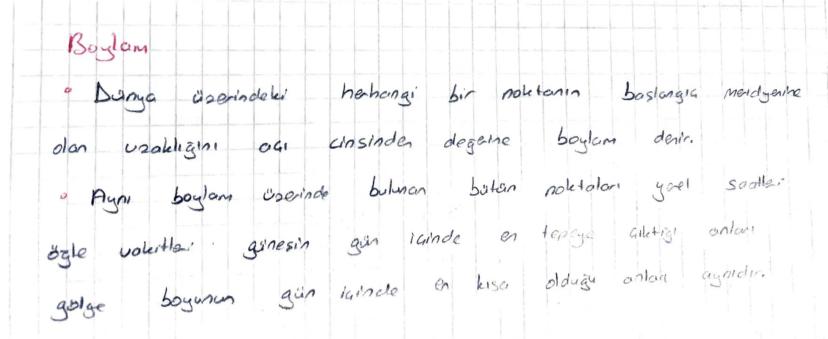 Boylam
• Dünya üzerindeki herhangi bir noktanın başlangıç meridyenine
olan uzaklığını açı cinsinden değerine boylam denir.
• Aynı boylam üzerinde bulunan bütün noktaları yerel saatleri
öğle vakitleri güneşin gün içinde en tepeye çıktığı anları
gölge boyunun gün içinde en kısa olduğu anları aynıdır.